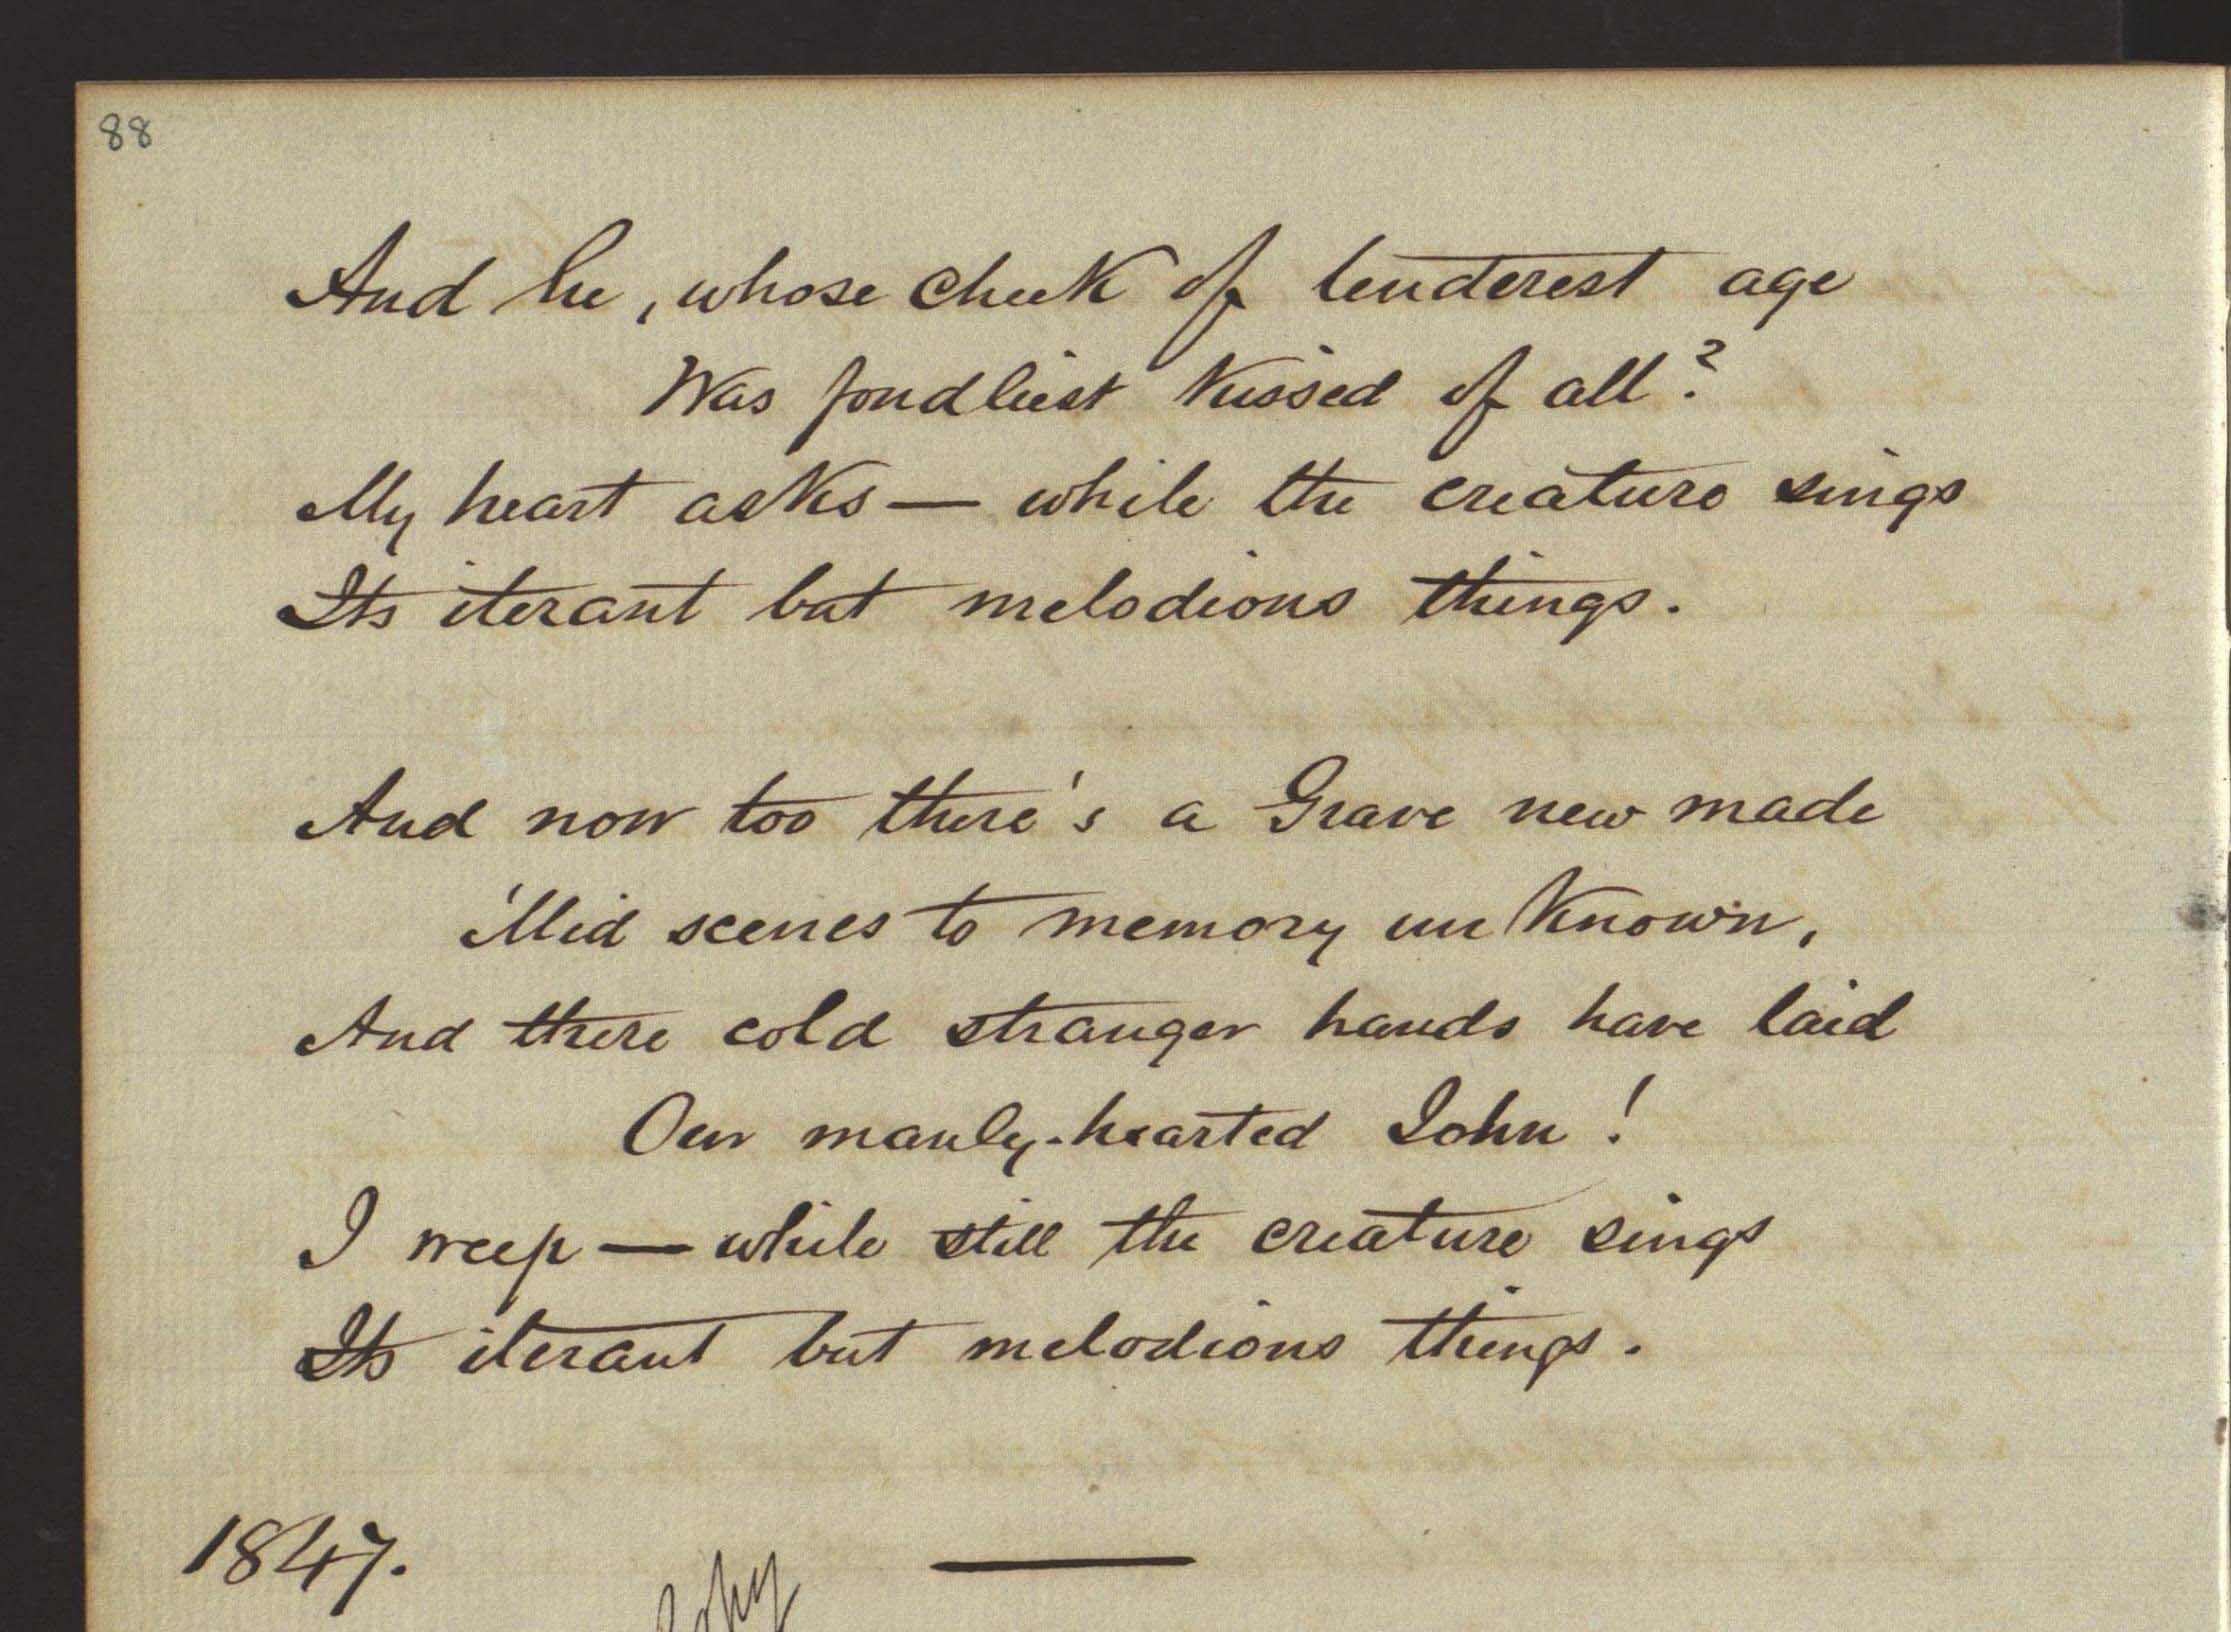 88
And he, whose cheek of tenderest age
Was fondliest kissed of all?
My heart asks — while the creature sings
Its iterant but melodious things.
And now too there's a Grave new made
'Mid scenes to memory unknown,
And there cold stranger hands have laid
Our manly-hearted John!
I weep — while still the creature sings
Its iterant but melodious things.
1847.
Copy